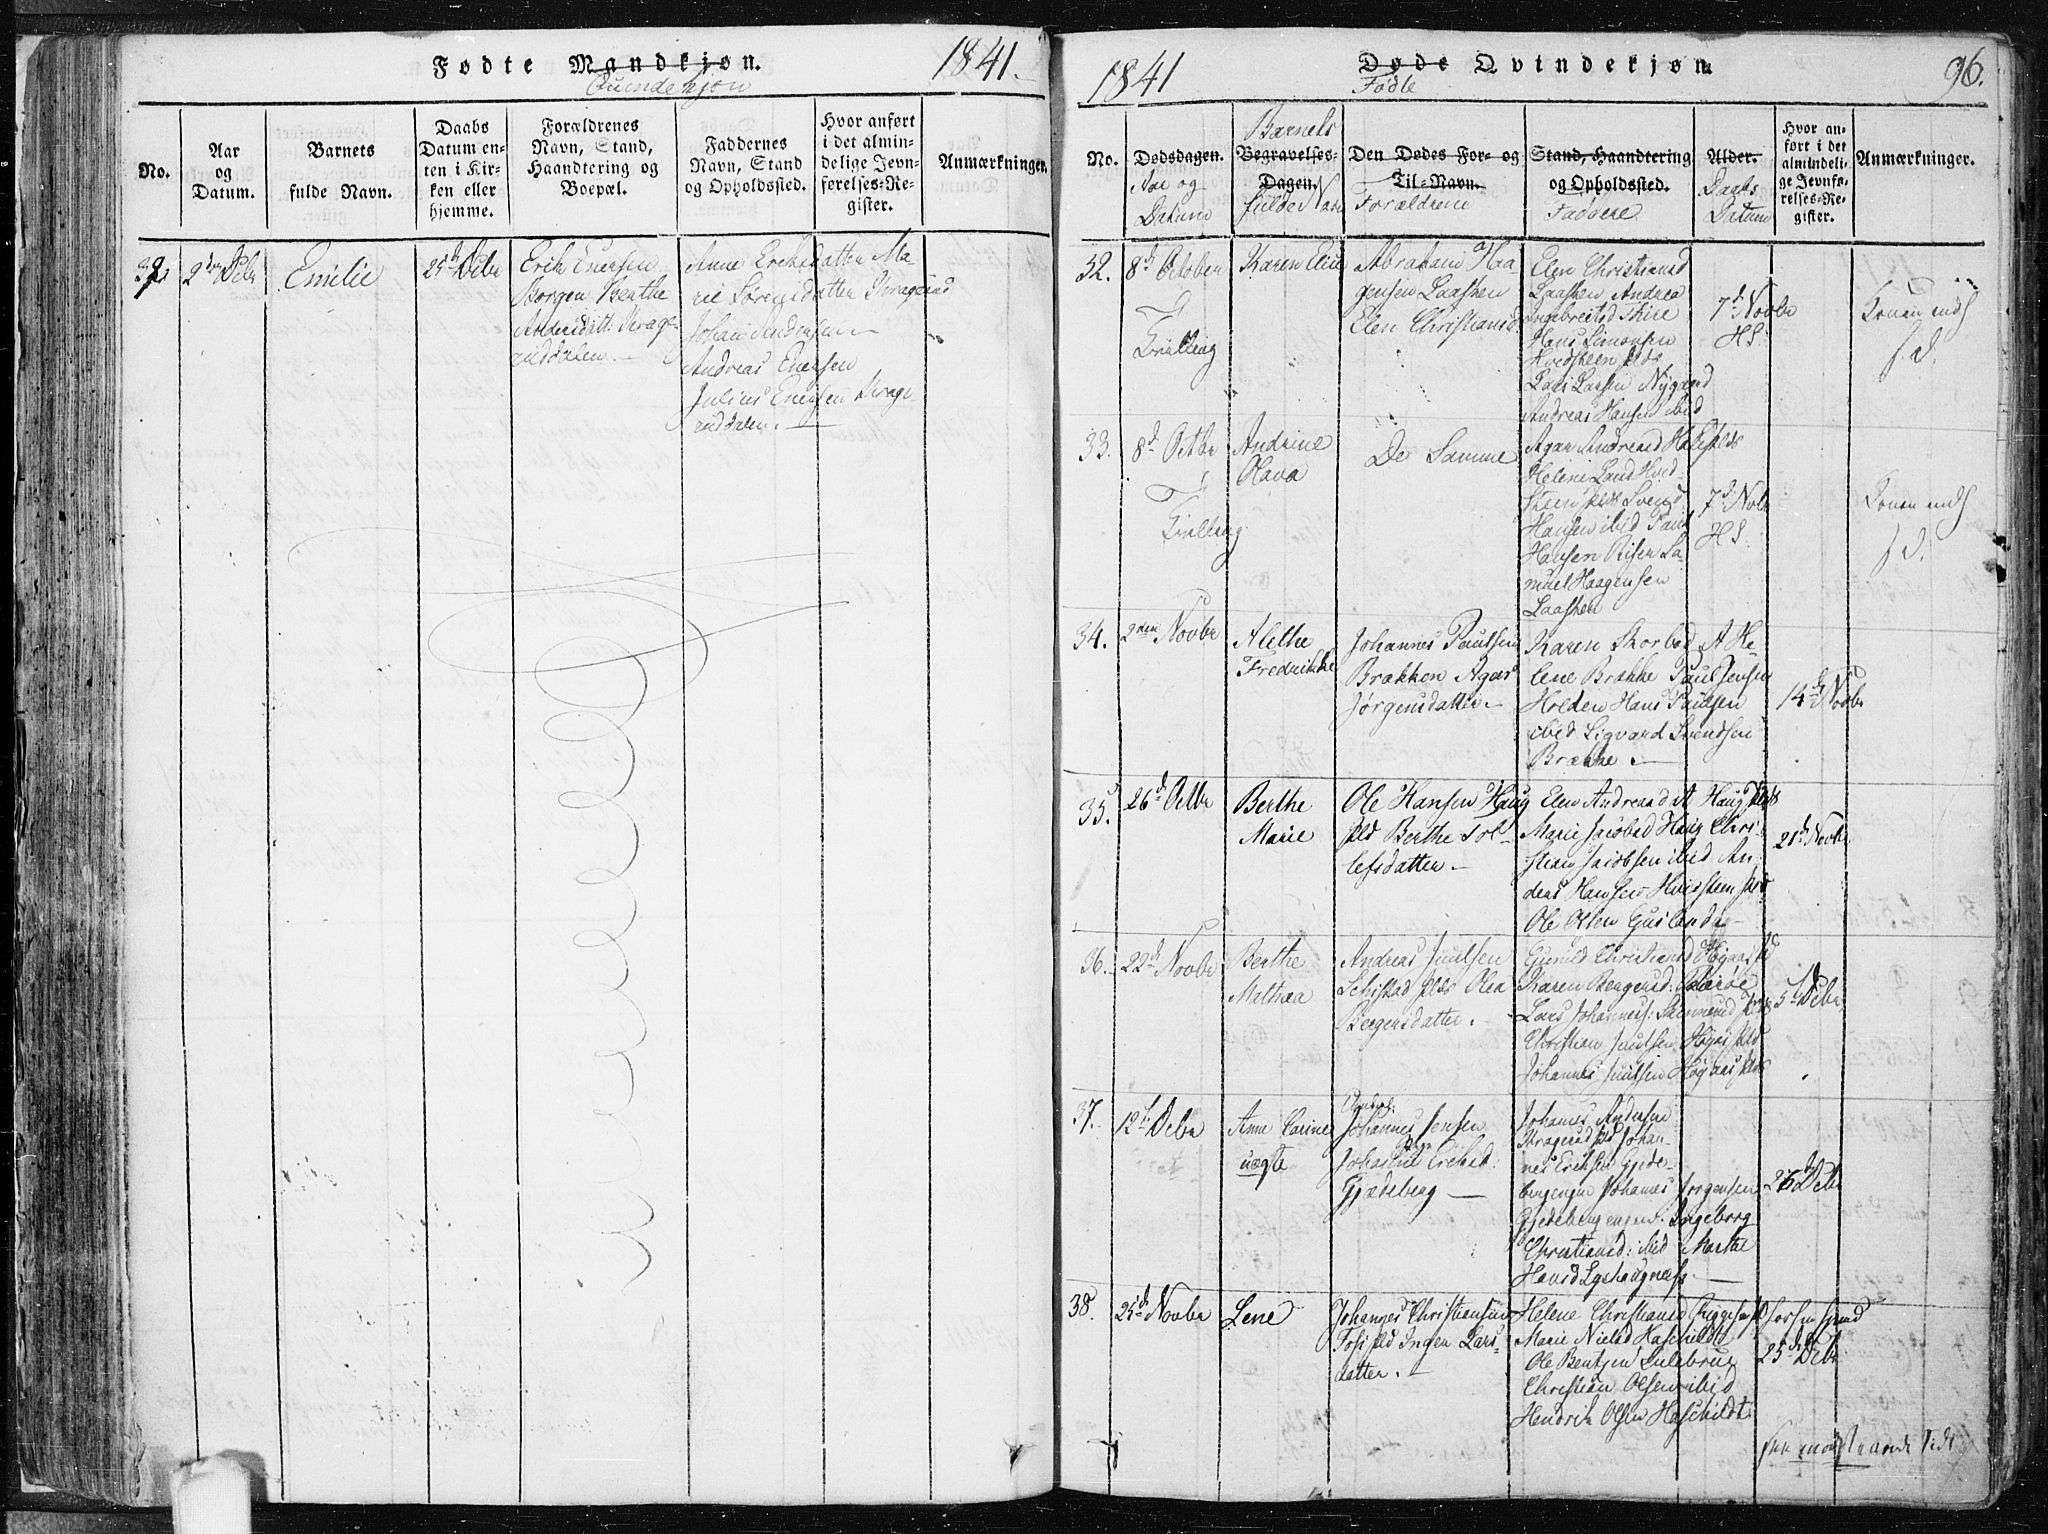 Fødte Mandkjøn. 1841.
Qvindekjøn
No.
Aar og Datum.
Barnets fulde Navn.
Daabs Datum enten i Kirken eller hjemme.
Forældrenes Navn, Stand, Haandtering og Boepæl.
Faddernes Navn, Stand og Opholdssted.
Hvor anført i det almindelige Jevnførelses-Register.
Anmærkninger.
2den Debr
Emilie
25d Debr
Erik Enersen
Borgen Berthe
Andersdatt: Krage
ruddalen.
Anne Eriksdatter Ma
rie Sørensdatter Kragerud
Johan Andersen
Andreas Enersen
Julius Enersen Krage
ruddalen.
1841 Døde Qvindekjøn 96.
Fødte
No.
Dødsdagen.
Aar og
Datum
Barnets
Begravelses-Dagen.
fulde Navn
Den Dødes For- og Til-Navn.
Forældrene
Stand, Haandtering og Opholdssted.
Faddere
Alder.
Daabs
Datum
Hvor anført i det almindelige Jevnførelses-Register.
Anmærkninger.
32.
8d October
Tvilling
Karen Elise
Abraham Haa
gensen Laashen
Elen Christiansd
Elen Christiansd
Laashen Andrea
Ingebretsd
Hans Simonsen
Hvidsteen plds
Lars Larsen Nygaard
Andreas Hansen ibid
7d Novbr
HS.
Konen inds
s. D.
33.
8d Octbr
Tvilling
Andrine
Olava
De Samme
Agar Andreasd
Helene Land Hvid
steen plds Svend
Hansen ibid Paul
Hansen Risen Sa
muel Haagensen
Laashen
7d Nobr
HS.
Konen inds
s. D.
34.
2den Novbr
Alethe
Fredrikke
Johannes Paulsen
Brækken Agar
Jørgensdatter.
Karen
lene Brække Paul Jensen
Holden Hans Paulsen
ibid Sigvard Svendsen
Brække.
14d Novbr
35.
26d Octbr
Berthe
Marie
Ole Hansen Haug
plds Berthe Tol
lefsdatter
Elen Andreasd Haug plds
Marie Jacobsd Haug Chri
stian Jacobsen ibid An
ders Hansen Hvidsteen plds
Ole Olsen Guslund
21d Novbr
36.
22d Novbr
Berthe
Mathea
Andreas Juulsen
Schistad plds Olea
Børgersdatter.
Gunild Christiansd
Karen Børgersd:
Lars Johanness:
Christian Juulsen
Johannes Juulsen
5d Debr
37.
12d Debr
Anne Carine
uægte
Ungkarl:
Johannes Jensen
Pige
Johanne Eriksd:
Gjædeberg
Johanes Andersen
Kragerud plds Johan
nes Eriksen Gjede
bergengen Johanes Jørgensen
Gjedebergengen. Ingeborg
Christiansd: ibid Marthe
26d Debr
38.
25d Novbr
Lene
Johannes Christiansen
Foss plds Ingen Lars
datter.
Helene Christiansd
Marie Nielsd Haschildt
Ole Bentsen
Christian Olsen ibid
Hendrik Olsen Haschildt
25d Debr
see modstaaende Side